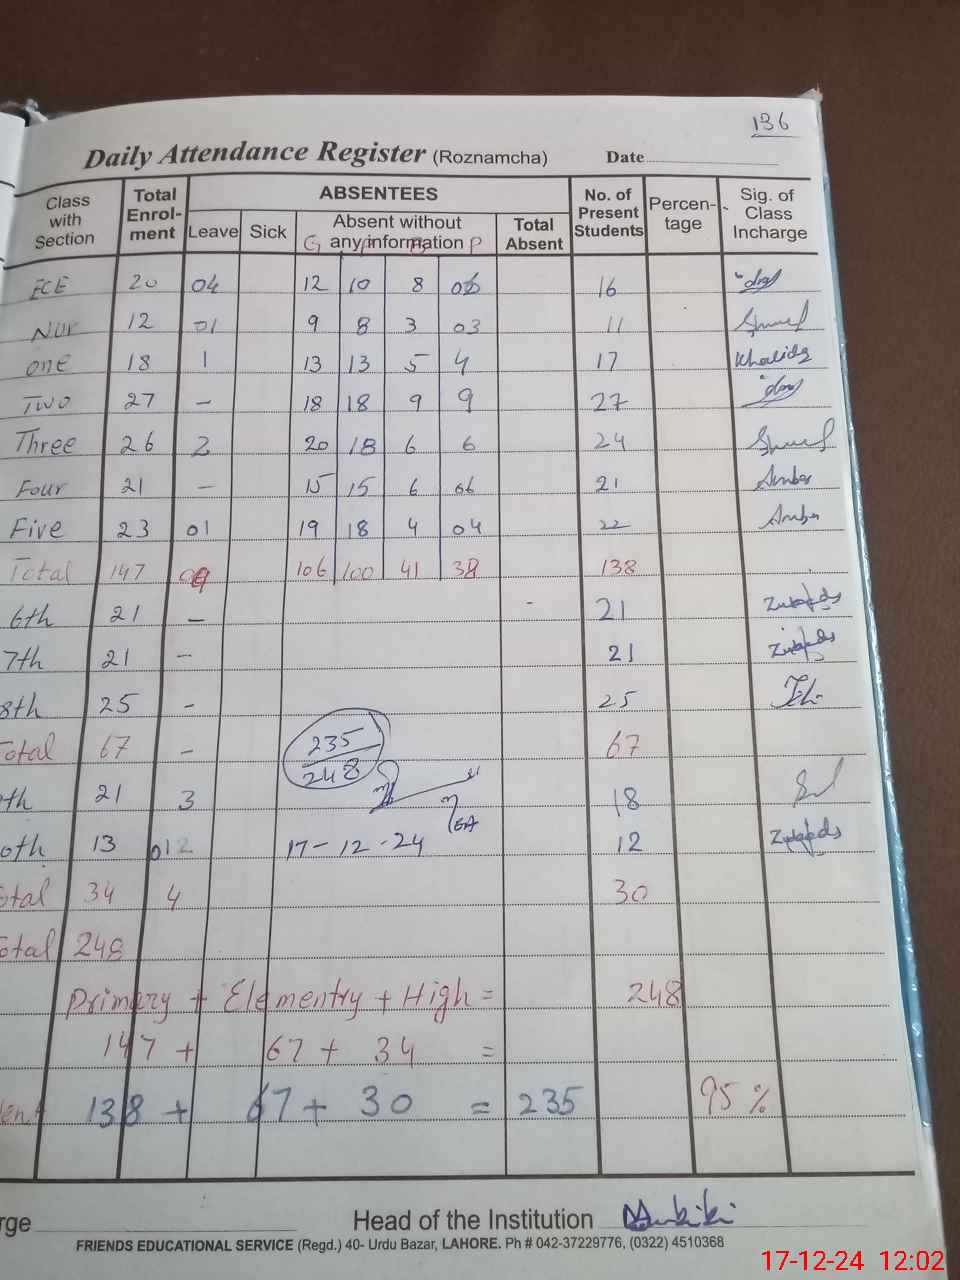 136
Daily Attendance Register (Roznamcha) Date
Class with Section Total Enrol-ment ABSENTEES No. of Present Students Percen-tage Sig. of Class Incharge
Leave Sick Absent without any information Total Absent
G P B P
ECE 20 04 12 10 8 06 16
NUR 12 01 9 8 3 03 11
one 18 1 13 13 5 4 17 Khalida
TWO 27 – 18 18 9 9 27
Three 26 2 20 18 6 6 24
Four 21 – 15 15 6 06 21 Amber
Five 23 01 19 18 4 04 22 Amber
Total 147 09 106 100 41 38 138
6th 21 – - 21
7th 21 – 21
8th 25 - 25
Total 67 - 67
235
248
th 21 3 18
oth 13 01 2 17-12-24 12
otal 34 4 30
otal 248
Primary + Elementry + High = 248
147 + 67 + 34 =
ent 138 + 67 + 30 = 235 95 %
rge Head of the Institution
FRIENDS EDUCATIONAL SERVICE (Regd.) 40- Urdu Bazar, LAHORE. Ph # 042-37229776, (0322) 4510368
17-12-24 12:02